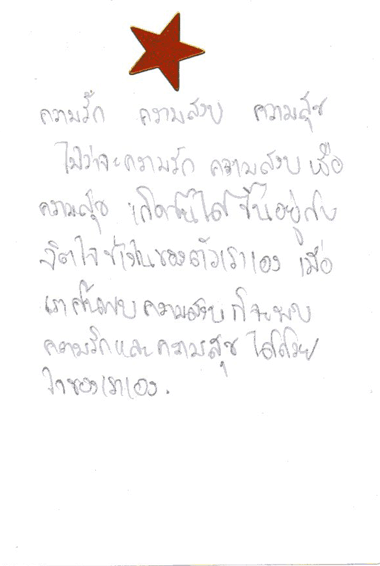 ความรัก ความสงบ ความสุข
ไม่ว่าจะความรัก ความสงบ หรือ
ความสุข เกิดขึ้นได้ ขึ้นอยู่กับ
จิตใจข้างในของตัวเราเอง เมื่อ
เราค้นพบความสงบ ก็จะพบ
ความรักและความสุข ได้ด้วย
ใจของเราเอง.